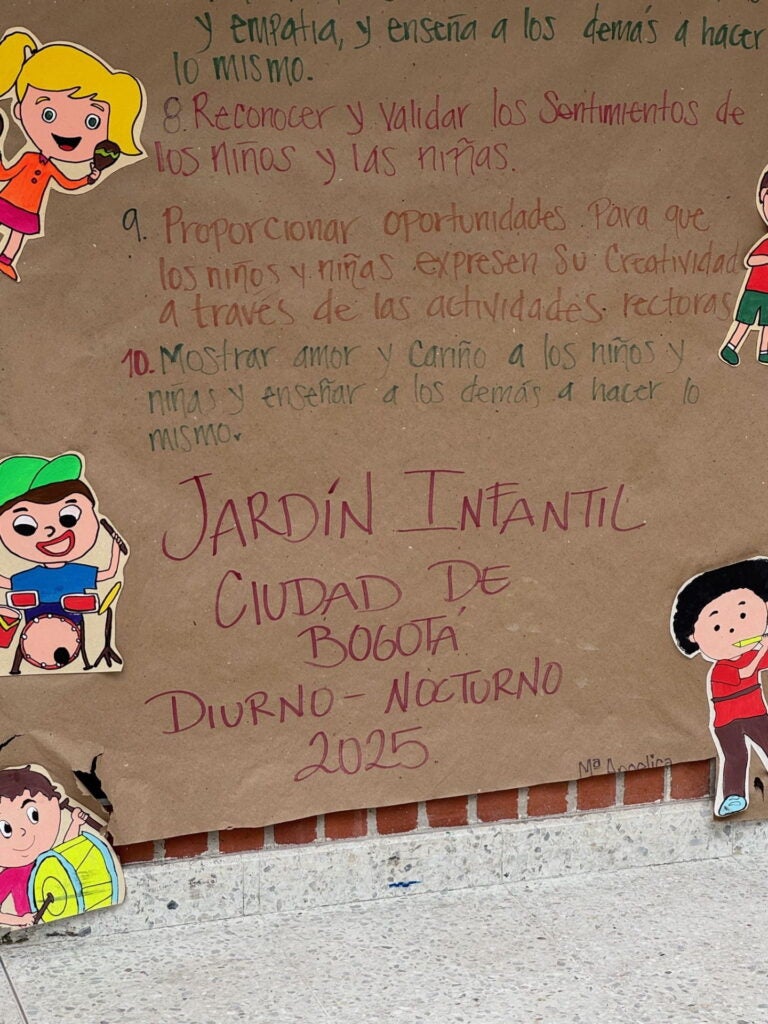 y empatía, y enseña a los demás a hacer
lo mismo.
8. Reconocer y validar los Sentimientos de
los niños y las niñas.
9. Proporcionar oportunidades Para que
los niños y niñas expresen Su Creatividad
a través de las actividades rectoras
10. Mostrar amor y cariño a los niños y
niñas y enseñar a los demás a hacer lo
mismo.
JARDÍN INFANTIL
CIUDAD DE
BOGOTÁ
DIURNO - NOCTURNO
2025
Mª Angelica